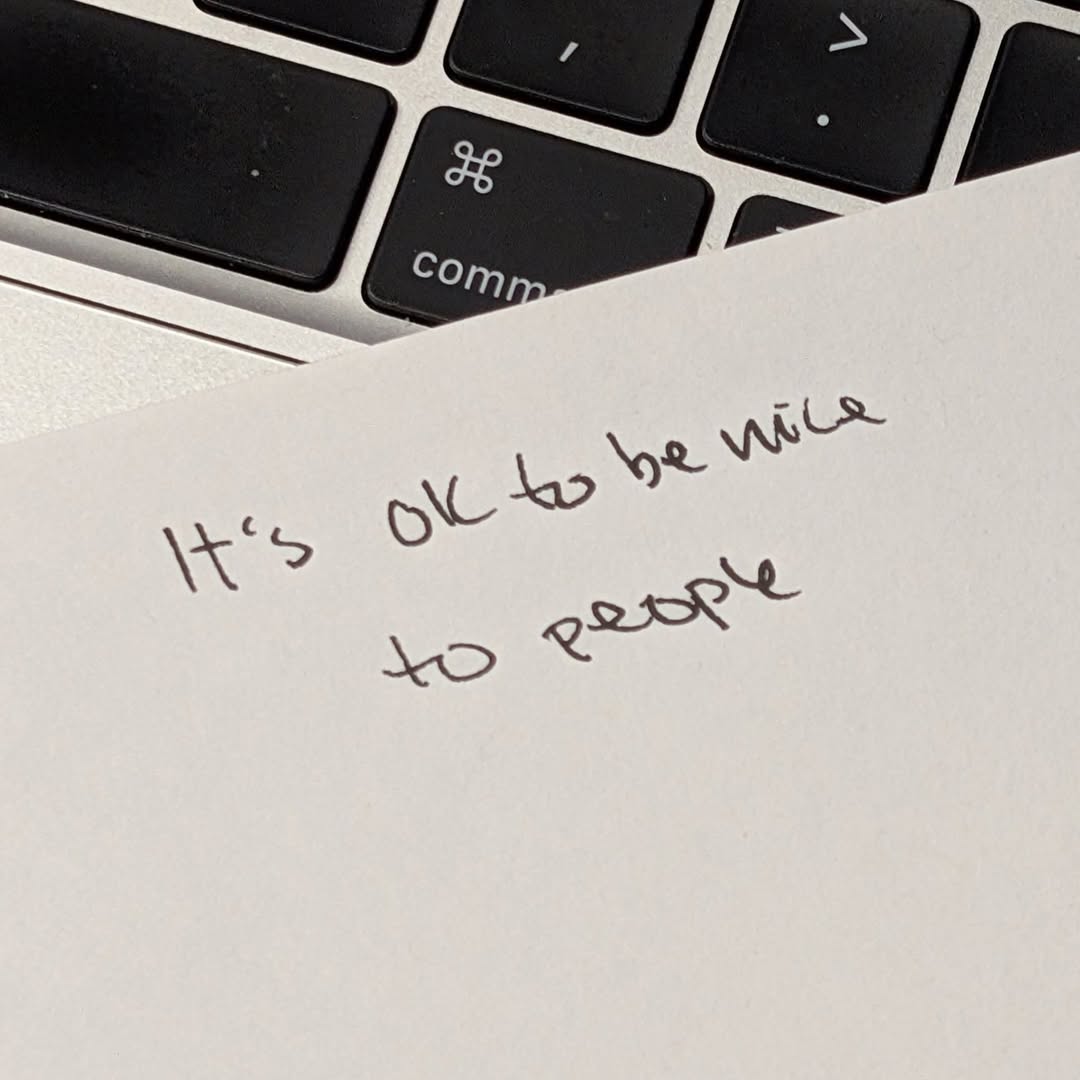 ,
>
.
⌘
comm
It's OK to be nice
to people